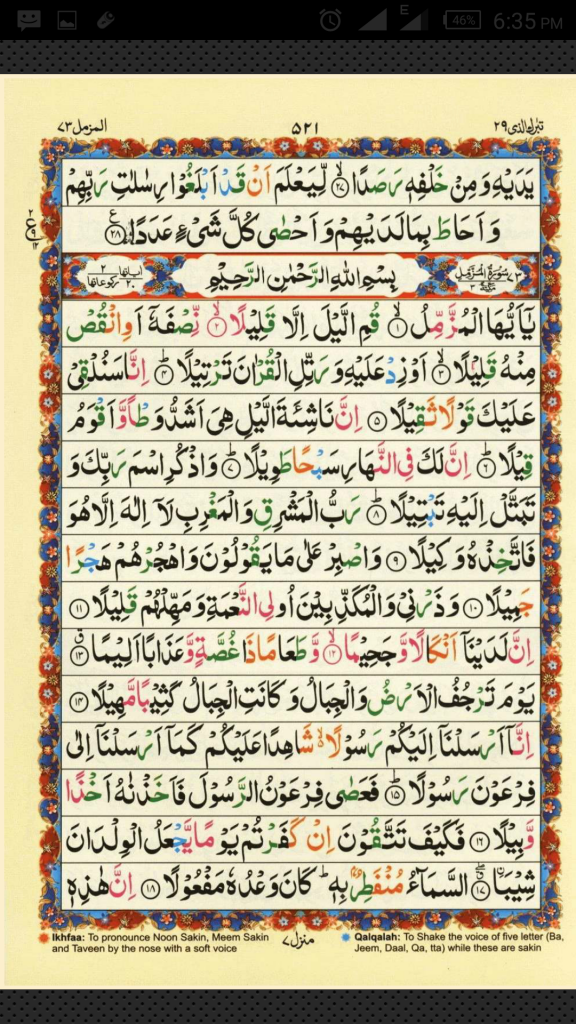 46% 6:35 PM
المزمل ٧٣ ٥٢١ تبٰرك الذی ٢٩
يَدَيْهِ وَمِنْ خَلْفِهٖ رَصَدًا ۙ‏ ﴿۲۷﴾ لِّيَعْلَمَ اَنْ قَدْ اَبْلَغُوْا رِسٰلٰتِ رَبِّهِمْ
وَاَحَاطَ بِمَا لَدَيْهِمْ وَاَحْصٰى كُلَّ شَىْءٍ عَدَدًا ﴿۲۸﴾
بِسْمِ اللّٰهِ الرَّحْمٰنِ الرَّحِيْمِ
يٰۤاَيُّهَا الْمُزَّمِّلُ ۙ ﴿۱﴾ قُمِ الَّيْلَ اِلَّا قَلِيْلًا ۙ ﴿۲﴾ نِّصْفَهٗۤ اَوِ انْقُصْ
مِنْهُ قَلِيْلًا ۙ ﴿۳﴾ اَوْ زِدْ عَلَيْهِ وَرَتِّلِ الْقُرْاٰنَ تَرْتِيْلًا ؕ ﴿۴﴾ اِنَّا سَنُلْقِىْ
عَلَيْكَ قَوْلًا ثَقِيْلًا ﴿۵﴾ اِنَّ نَاشِئَةَ الَّيْلِ هِىَ اَشَدُّ وَطْاً وَّاَقْوَمُ
قِيْلًا ؕ ﴿۶﴾ اِنَّ لَكَ فِى النَّهَارِ سَبْحًا طَوِيْلًا ؕ ﴿۷﴾ وَاذْكُرِ اسْمَ رَبِّكَ وَ
تَبَتَّلْ اِلَيْهِ تَبْتِيْلًا ؕ ﴿۸﴾ رَبُّ الْمَشْرِقِ وَالْمَغْرِبِ لَاۤ اِلٰهَ اِلَّا هُوَ
فَاتَّخِذْهُ وَكِيْلًا ﴿۹﴾ وَاصْبِرْ عَلٰى مَا يَقُوْلُوْنَ وَاهْجُرْهُمْ هَجْرًا
جَمِيْلًا ﴿۱۰﴾ وَذَرْنِىْ وَالْمُكَذِّبِيْنَ اُولِى النَّعْمَةِ وَمَهِّلْهُمْ قَلِيْلًا ﴿۱۱﴾
اِنَّ لَدَيْنَاۤ اَنْكَالًا وَّجَحِيْمًا ۙ ﴿۱۲﴾ وَّطَعَامًا ذَا غُصَّةٍ وَّعَذَابًا اَلِيْمًا ﴿۱۳﴾
يَوْمَ تَرْجُفُ الْاَرْضُ وَالْجِبَالُ وَكَانَتِ الْجِبَالُ كَثِيْبًا مَّهِيْلًا ﴿۱۴﴾
اِنَّاۤ اَرْسَلْنَاۤ اِلَيْكُمْ رَسُوْلًا ۙ شَاهِدًا عَلَيْكُمْ كَمَاۤ اَرْسَلْنَاۤ اِلٰى
فِرْعَوْنَ رَسُوْلًا ؕ ﴿۱۵﴾ فَعَصٰى فِرْعَوْنُ الرَّسُوْلَ فَاَخَذْنٰهُ اَخْذًا
وَّبِيْلًا ﴿۱۶﴾ فَكَيْفَ تَتَّقُوْنَ اِنْ كَفَرْتُمْ يَوْمًا يَّجْعَلُ الْوِلْدَانَ
شِيْبَا ۖ ﴿۱۷﴾ اۨلسَّمَآءُ مُنْفَطِرٌۢ بِهٖ ؕ كَانَ وَعْدُهٗ مَفْعُوْلًا ﴿۱۸﴾ اِنَّ هٰذِهٖ
منزل ٧
Ikhfaa: To pronounce Noon Sakin, Meem Sakin
and Taveen by the nose with a soft voice
Qalqalah: To Shake the voice of five letter (Ba,
Jeem, Daal, Qa, tta) while these are sakin